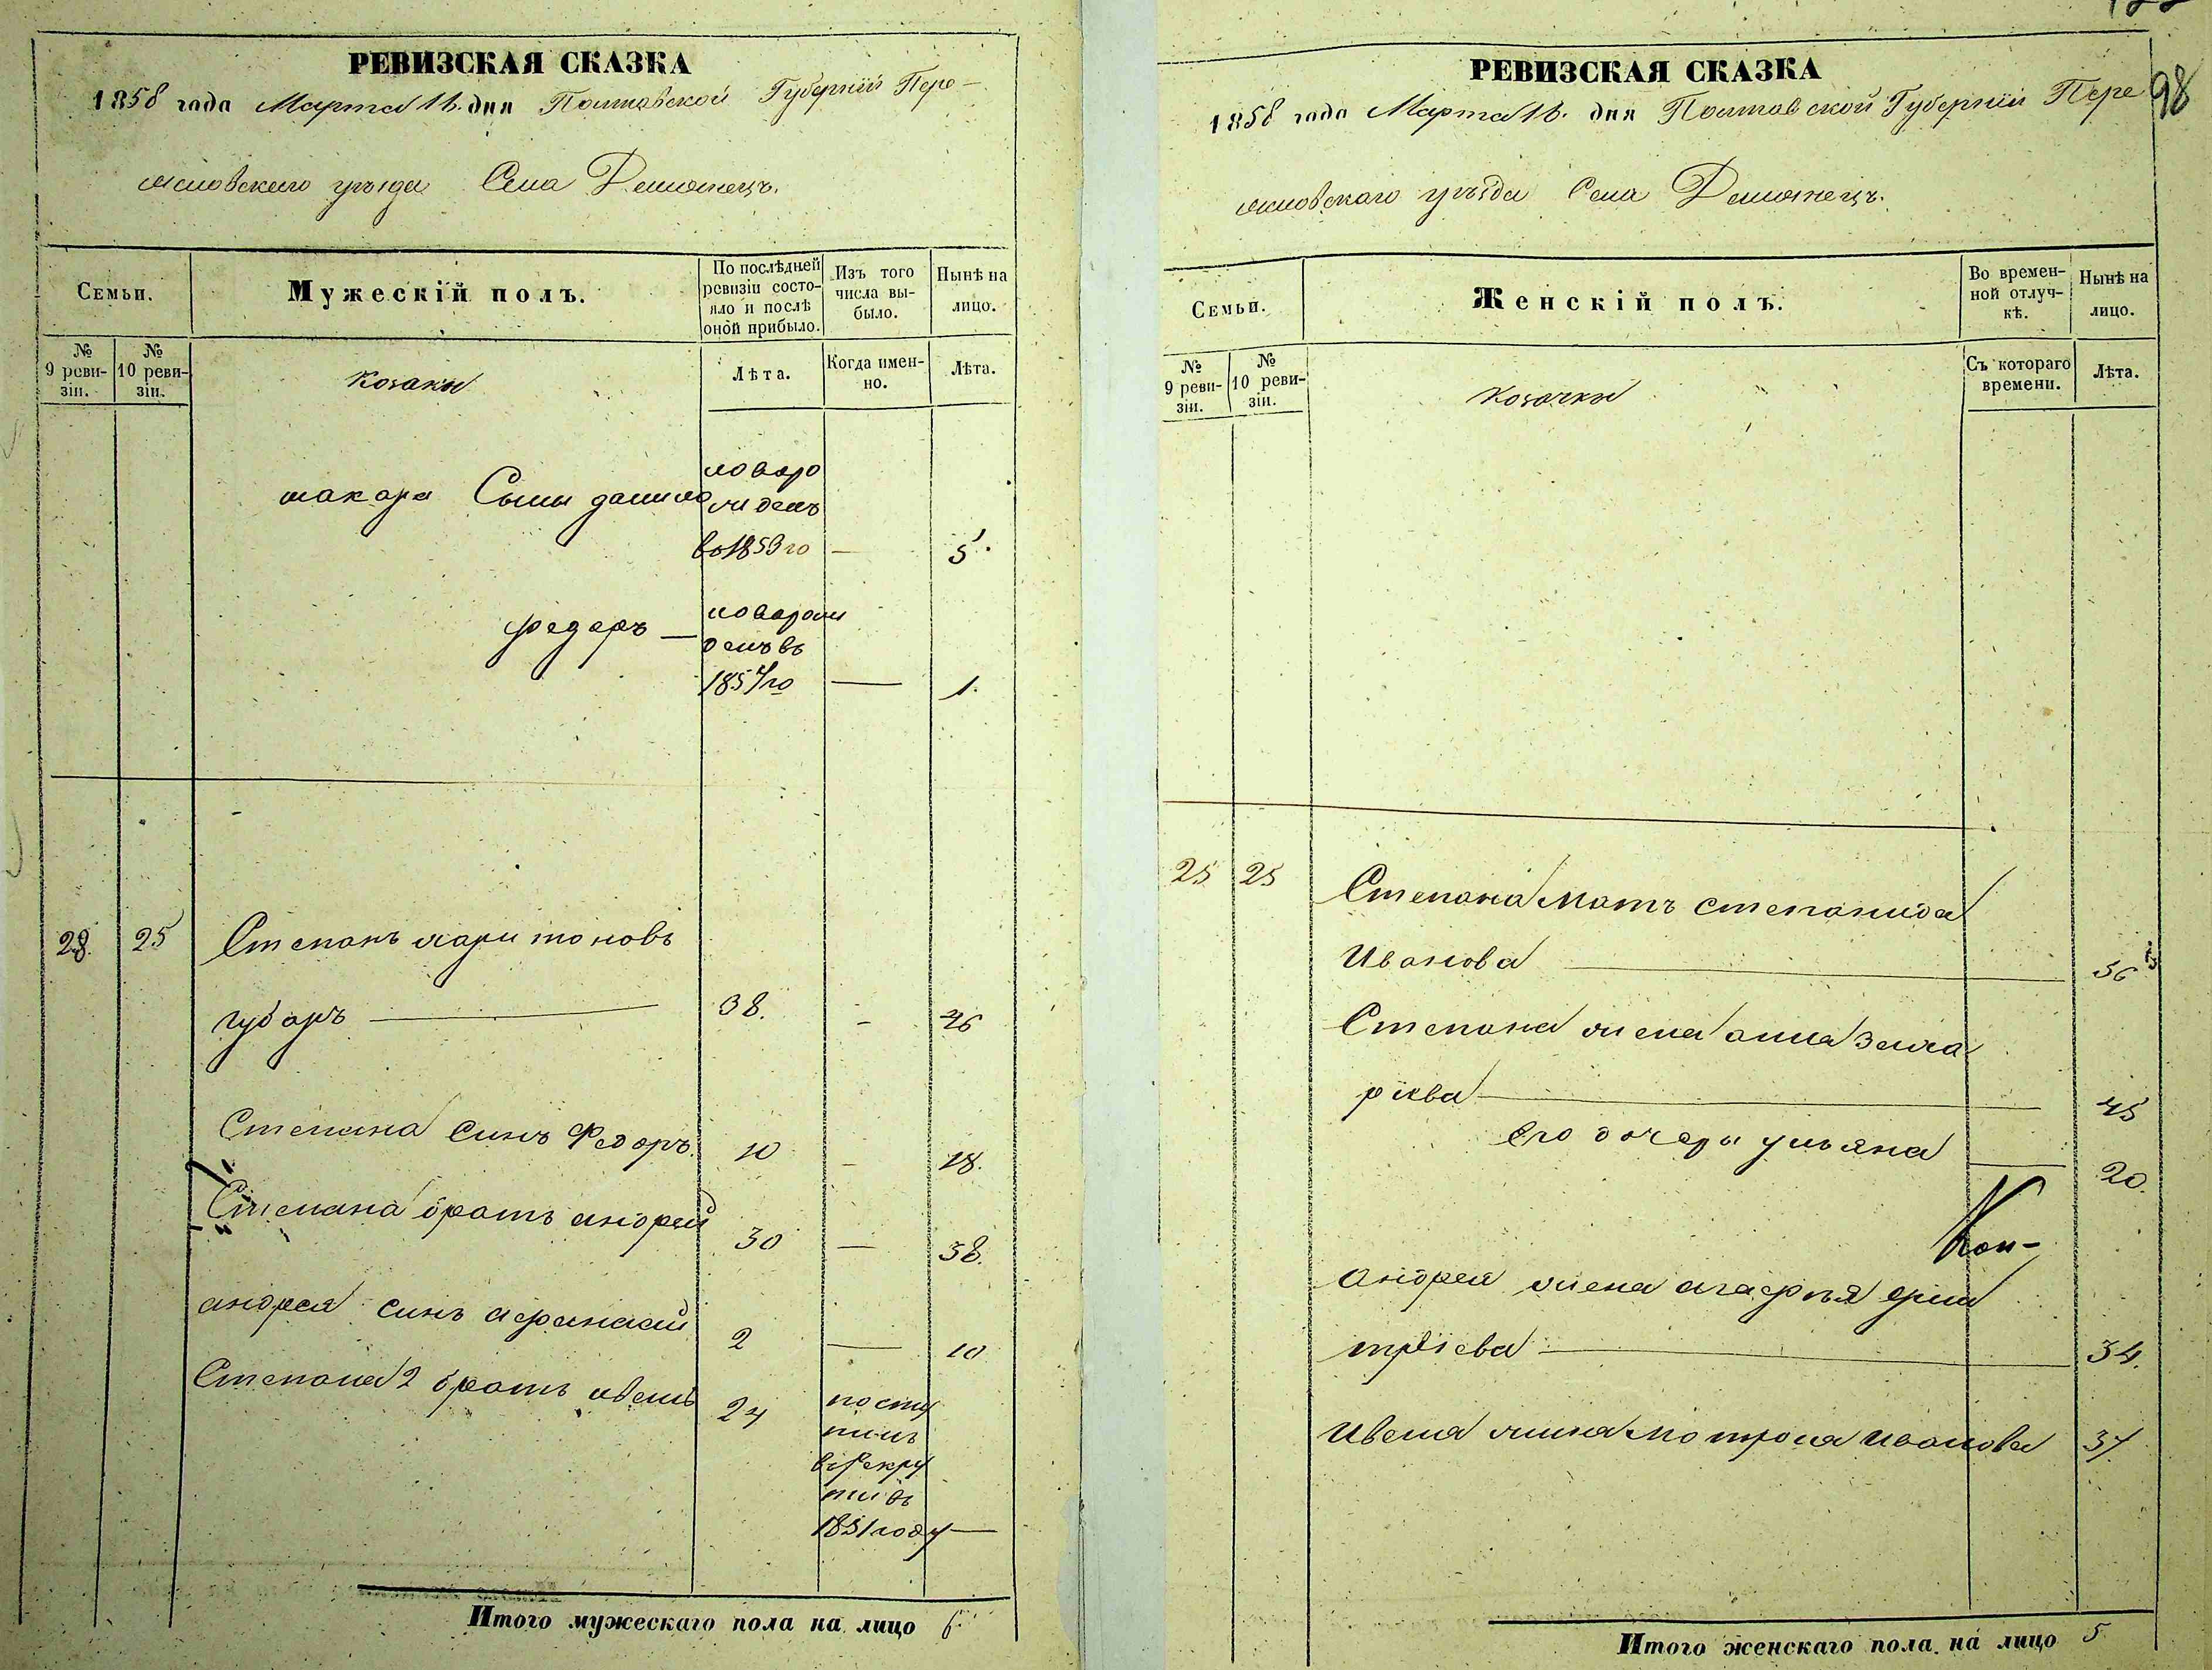 РЕВИЗСКАЯ СКАЗКА
1858 года Марта 16. дня Полтавской Губернïи Пере-
яславского уѣзда Села Демянецъ.
Семьи.
Мужескій полъ.
По послѣдней ревизіи состояло и послѣ оной прибыло.
Изъ того числа выбыло.
Нынѣ на лицо.
№ 9 ревизіи.
№ 10 ревизіи.
козаки
Лѣта.
Когда именно.
Лѣта.
макара Сыны данило
новоро
жденъ
во 1853 го — 5.
федоръ — новорож
денъ въ
1857 го — 1.
28. 25 Степанъ харитоновъ
губарь — 38. - 46
Степана синъ Федоръ. 10 - 18.
Степана братъ андрей 30 — 38.
андрея синъ афанасий 2 — 10
Степана 2 братъ
24 посту
пилъ
в рекру
ти въ
1851 году —
Итого мужескаго пола на лицо 6.
98
РЕВИЗСКАЯ СКАЗКА
1858 года Марта 16. дня Полтавской Губернïи Пере
яславскаго уѣзда Села Демянецъ.
Семьи.
Женскій полъ.
Во временной отлучкѣ.
Нынѣ на лицо.
№ 9 ревизіи.
№ 10 ревизіи.
козачки
Съ котораго времени.
Лѣта.
25 25 Степана мать степанида
Иванова — 56
Степана жена анна заха
рïева — 45
Его дочерь ульяна — 20.
андрея жена агафья
— 34.
жина мотрона иванова 37.
Итого женскаго пола на лицо 5